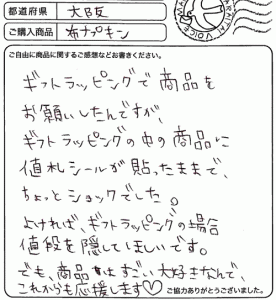 都道府県 大阪
ご購入商品 布ナプキン
ご自由に商品に関するご感想などお書きください。
ギフトラッピングで商品を
お願いしたんですが、
ギフトラッピングの中の商品に
値札シールが貼ったままで、
ちょっとショックでした。
よければ、ギフトラッピングの場合
値段を隠してほしいです。
でも、商品はすごい大好きなんで、
これからも応援します♡
ご協力ありがとうございました。